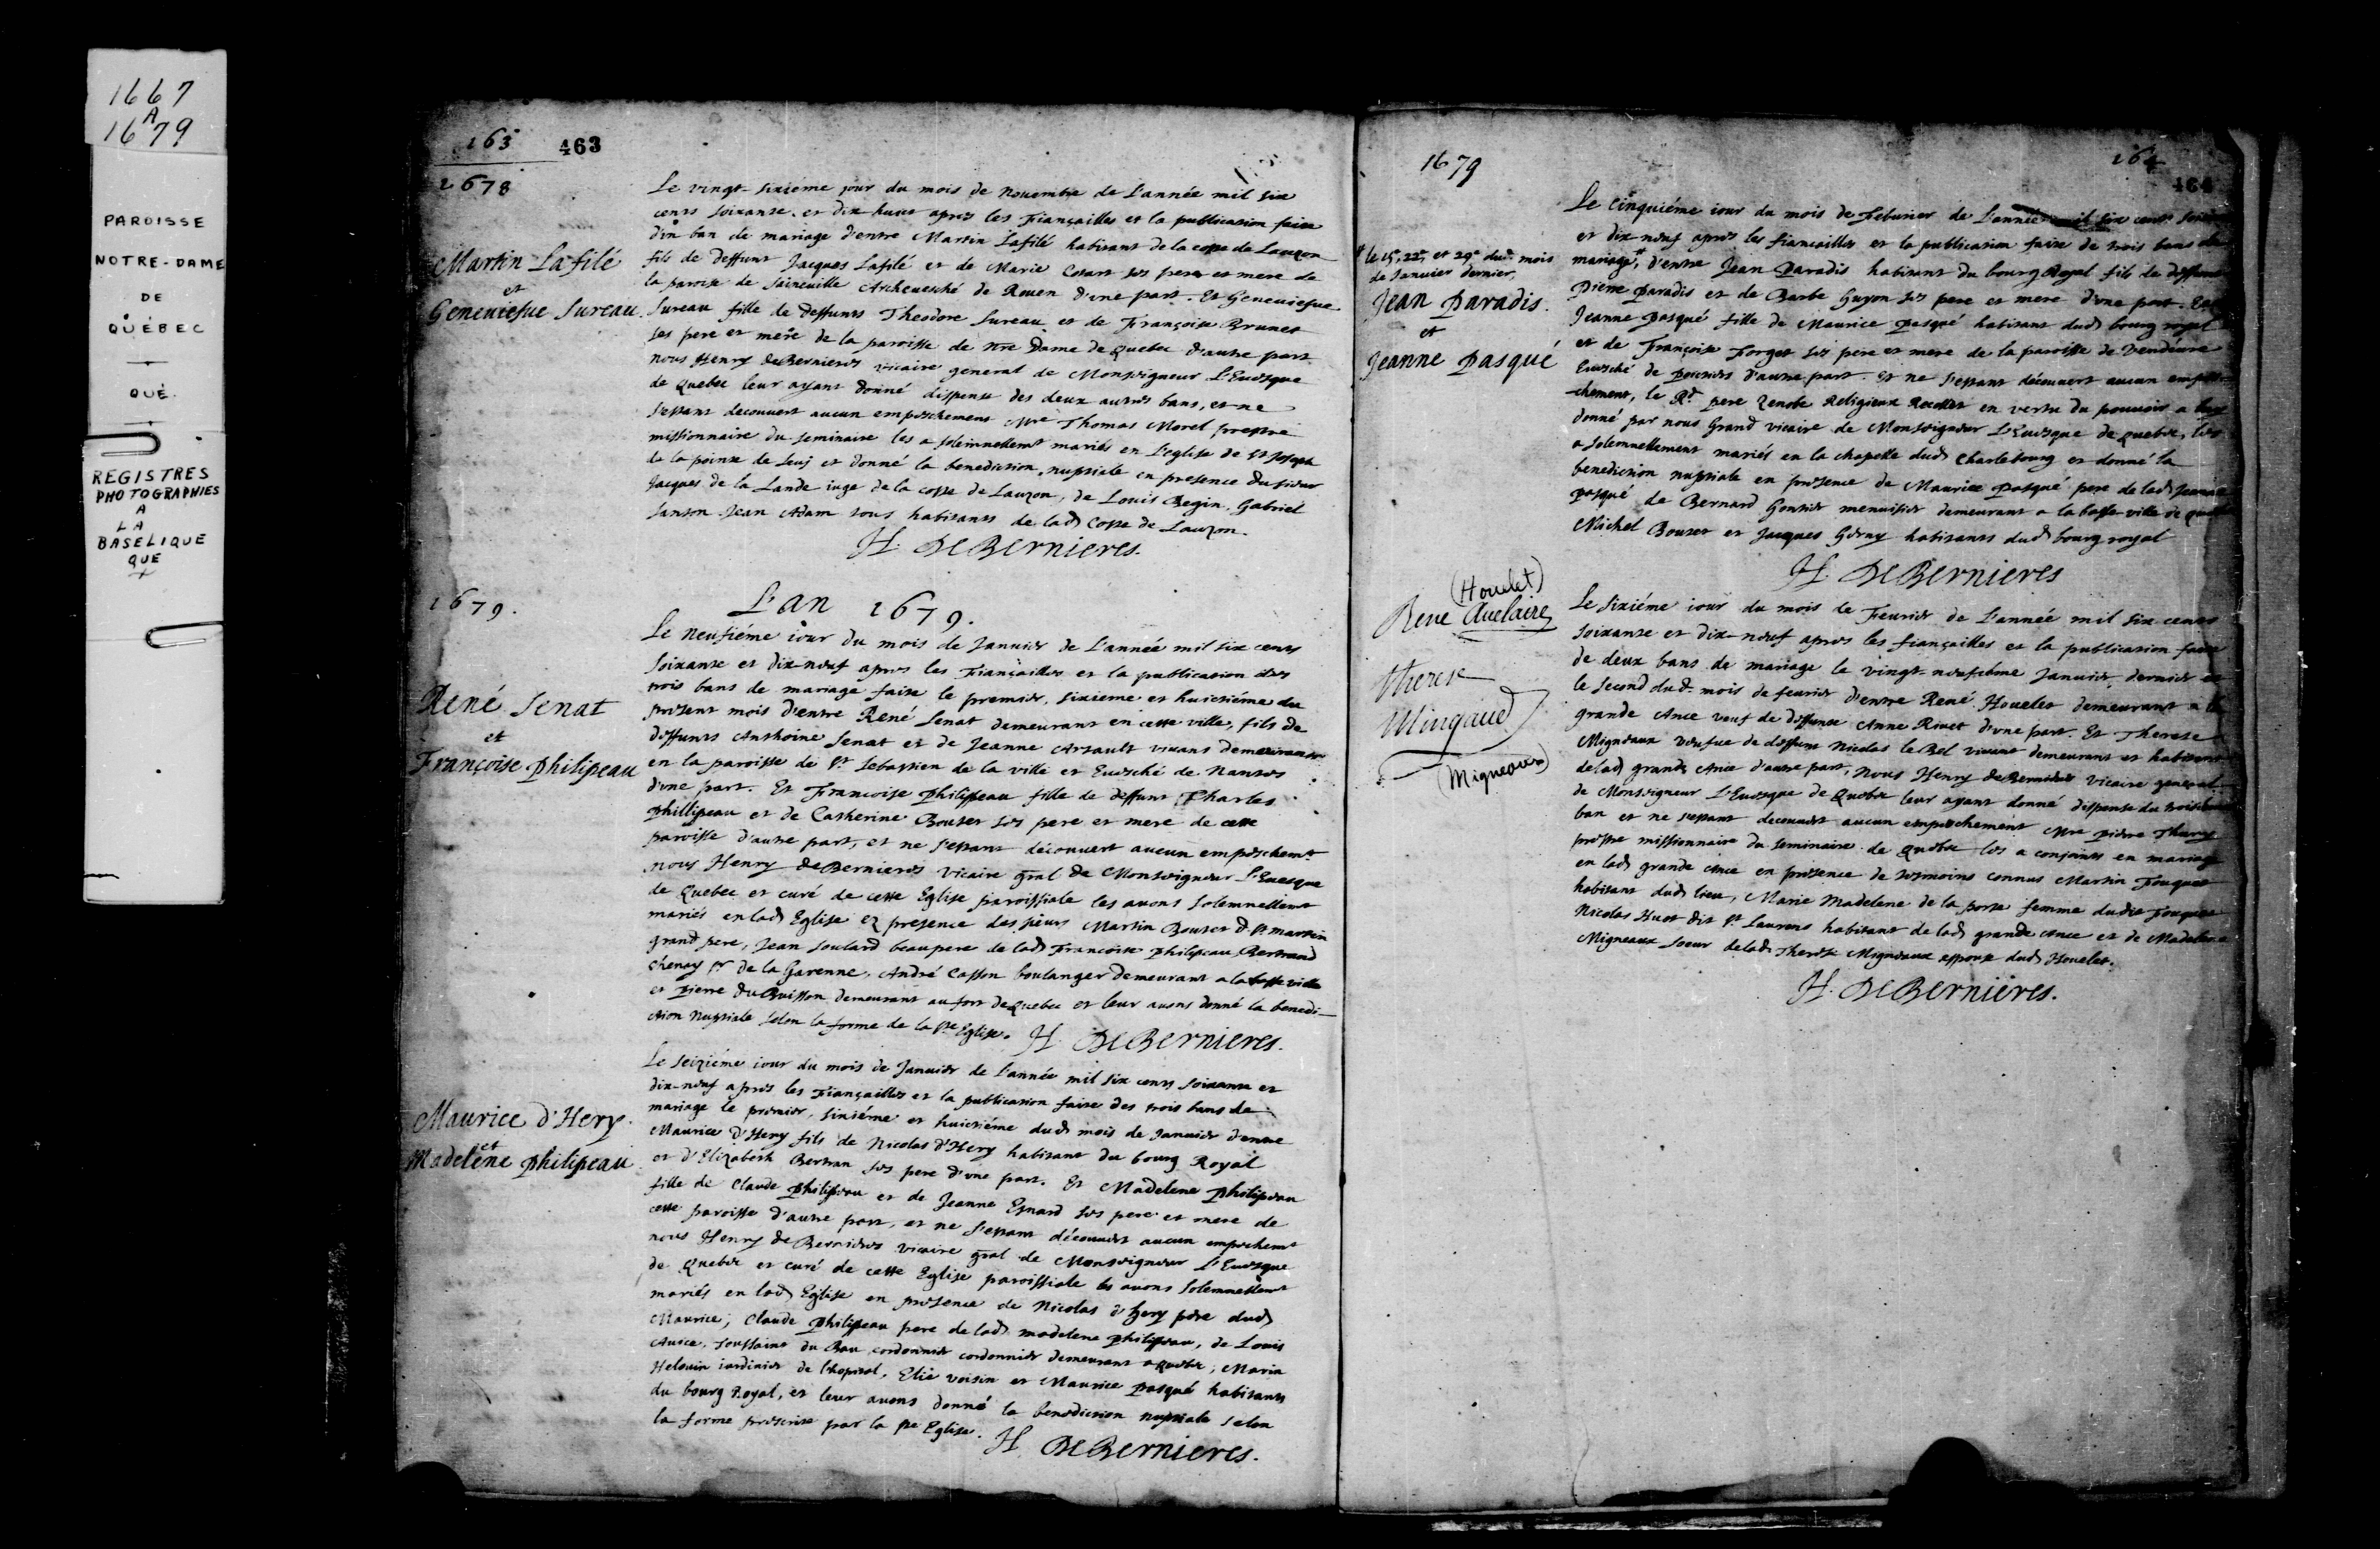 1667
A
1679
PAROISSE
NOTRE-DAME
DE
QUÉBEC
QUÉ.
REGISTRES
PHOTOGRAPHIES
A
LA
BASELIQUE
QUE
163 463
1678
Martin Lafilé
et
Geneuiefue Sureau.
Le vingt-sixiéme jour du mois de Nouembre de L'année mil six
cents soixante et dix huict apres les Fiançailles et la publication faite
d'un ban de mariage d'entre Martin Lafilé habitant de la coste de Lauzon
fils de deffunt Jacques Lafilé et de Marie Cotart ses pere et mere de
la paroisse de Saineuille Archeuesché de Rouen d'une part. Et Geneuiefue
Sureau fille de deffunts Theodore Sureau et de Françoise Brunet
ses pere et mere de la paroisse de nre Dame de Quebec d'autre part
nous Henry de Bernieres vicaire general de Monseigneur L'Euesque
de Quebec leur ayant donné dispense des deux autres bans, et ne
s'estant decouuert aucun empeschement Mre Thomas Morel prestre
missionnaire du seminaire les a solemnellemt mariés en L'eglise de St Joseph
de la pointe de Leuy et donné la benediction nuptiale en presence du sieur
Jacques de la Lande iuge de la coste de Lauzon, de Louis Begin, Gabriel
Samson Jean Adam tous habitants de lad coste de Lauzon.
H. DeBernieres.
1679.
L'an 1679.
René Senat
et
Françoise Philipeau
Le neufiéme iour du mois de Januier de L'année mil six cents
soixante et dix-neuf apres les Fiançailles et la publication des
trois bans de mariage faite le premier, sixieme et huictiéme du
present mois d'entre René Senat demeurant en cette ville, fils de
deffunts Anthoine Senat et de Jeanne Arsault viuans demeurants
en la paroisse de St Sebastien de la ville et Euesché de Nantes
d'une part. Et Francoise Philippeau fille de deffunt Charles
Phillipeau et de Catherine Boutet ses pere et mere de cette
paroisse d'autre part, et ne s'estant découuert aucun empeschemt
nous Henry de Bernieres vicaire gral de Monseigneur L'Euesque
de Quebec et curé de cette Eglise paroissiale les auons solemnellemt
mariés en lad Eglise en presence des sieurs Martin Boutet d. St martin
grand pere, Jean Soulard beaupere de lad Francoise Philipeau, Bertrand
Chenay sr de la Garenne, André Casson boulanger demeurant a la basse ville
et Pierre du Buisson demeurant au fort de Quebec et leur auons donné la benedi-
ction Nuptiale selon la forme de la ste Eglise. H. DeBernieres.
Maurice d'Hery
et
Madelene Philipeau
Le seiziéme iour du mois de Januier de L'année mil six cents soixante et
dix-neuf apres les Fiançailles et la publication faite des trois bans de
mariage le premier, sixiéme et huictiéme dud mois de Januier d'entre
Maurice d'Hery fils de Nicolas d'Hery habitant du bourg Royal
et d'Elizabeth Bertran ses pere d'une part. Et Madelene Philipeau
fille de Claude Philipeau et de Jeanne Enard ses pere et mere de
cette paroisse d'autre part, et ne s'estant découuert aucun empechemt
nous Henry de Bernieres vicaire gral de Monseigneur L'Euesque
de Quebec et curé de cette Eglise paroissiale les auons solemnellemt
mariés en lad Eglise en presence de Nicolas d'hery pere dud
Maurice, Claude Philipeau pere de lad madelene Philipeau, de Louis
Auice, Toussaint du Bau cordonnier cordonnier demeurant a Quebec,
Helouin iardinier de l'hopital, Elie voisin et Maurice Pasqué habitants
du bourg Royal, et leur auons donné la benediction nuptiale selon
la forme prescrite par la ste Eglise.
H. DeBernieres.
1679
164
464
* le 15, 22, et 29e dud. mois
de Januier dernier.
Jean Paradis.
et
Jeanne Pasqué
Le cinquiéme iour du mois de Feburier de L'année mil six cents
et dix-neuf apres les fiancailles et la publication faite de trois bans de
mariage*, d'entre Jean Paradis habitant du bourg Royal fils de deffunt
Pierre Paradis et de Barbe Guyon ses pere et mere d'une part. Et
Jeanne Pasqué fille de Maurice Pasqué habitant dud bourg royal
et de Françoise Forget ses pere et mere de la paroisse de Vendéuvre
Euesché de Poictiers d'autre part. Et ne s'estant découuert aucun empes-
chement, le Rd pere Zenobe Religieux Recollet en vertu du pouuoir a luy
donné par nous Grand vicaire de Monseigneur L'Euesque de Quebec, les
a solemnellement mariés en la chapelle dud Charlebourg et donné la
benediction nuptiale en presence de Maurice Pasqué pere de lad Jeanne
Pasqué de Bernard Gontier menuisier demeurant a la basse-ville de
Michel Boutet et Jacques Gerny habitants dud bourg royal
H. DeBernieres
(Houelet)
Rene Auclaire
Therese
Mingaud
(Migneaux)
Le sixiéme iour du mois de Feurier de L'année mil six cents
soixante et dix-neuf apres les fiançailles et la publication faite
de deux bans de mariage le vingt-neufiéme Januier dernier et
le second dud. mois de feurier d'entre René Houelet demeurant a la
grande Ance veuf de deffunte Anne Riuet d'une part. Et Therese
Migneaux veufue de deffunt Nicolas le Bel viuant demeurant et habitant
de lad grande Ance d'autre part, nous Henry de Bernieres vicaire general
de Monseigneur L'Euesque de Quebec leur ayant donné dispense du troisiéme
ban et ne s'estant decouuert aucun empeschement Mre Pierre Thury
prestre missionnaire du seminaire de Quebec les a conjoints en mariage
en lad grande Ance en presence de tesmoins connus Martin Fouquet
habitant dud lieu, Marie Madelene de la porte femme dudit Fouquet
Nicolas Huot dit St Laurens habitant de lad grande Ance et de Madelene
Migneaux soeur de lad Therese Migneaux espouse dud Houelet.
H. DeBernieres.